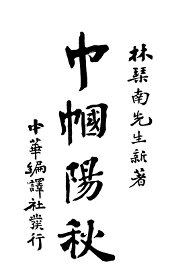 林琴南先生新著
巾幗陽秋
中華編譯社發行